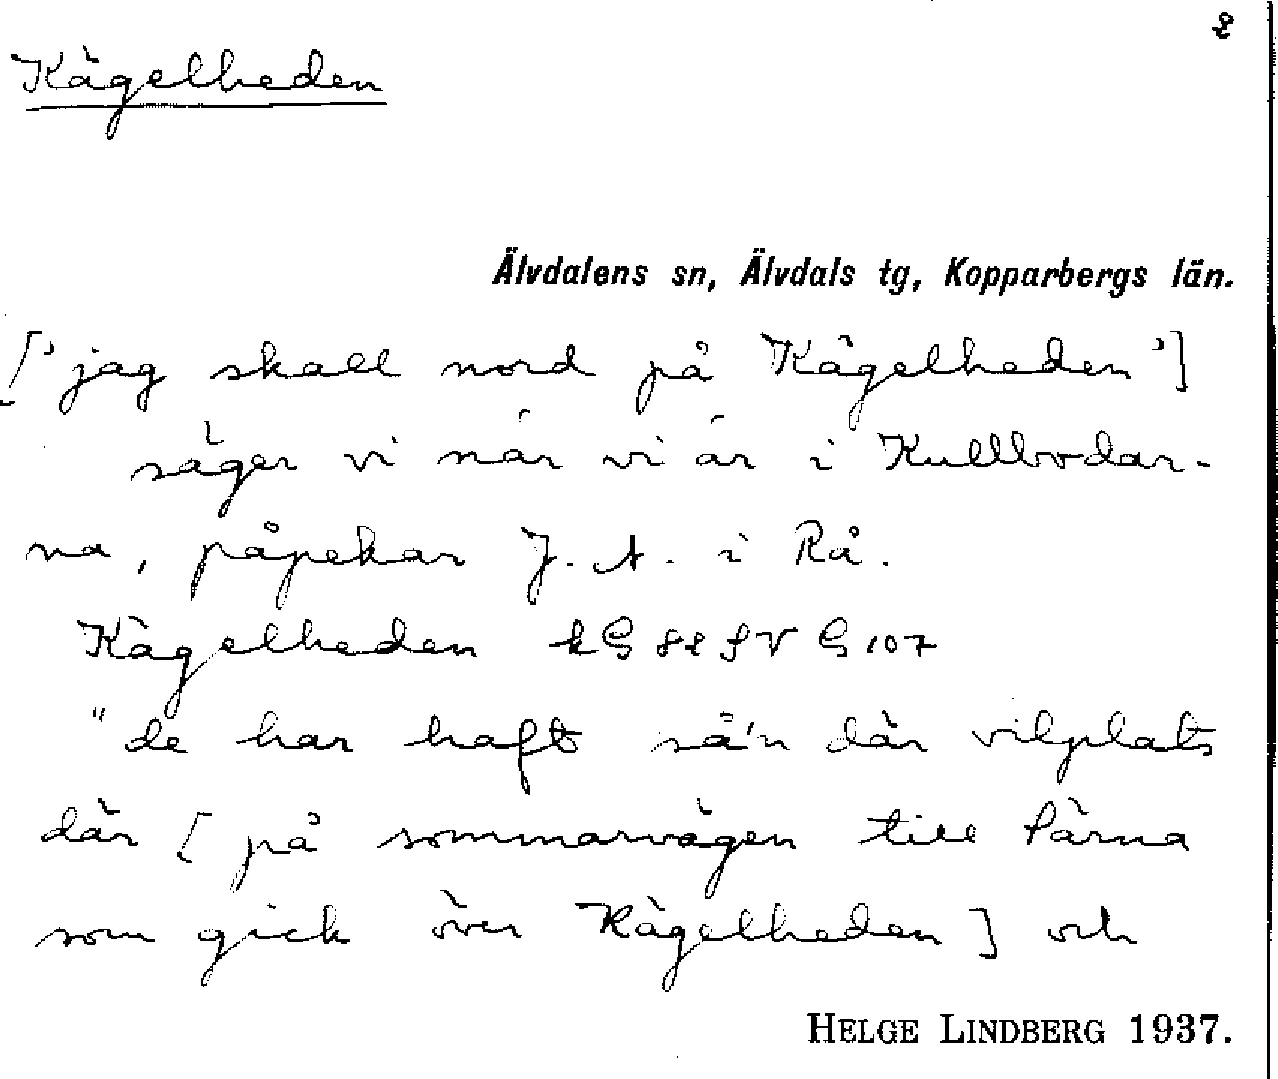 2
Kägelheden
Älvdalens sn, Älvdals tg, Kopparbergs län.
['jag skall nord på Kägelheden']
säger vi när vi är i Kullbodar-
na, påpekar J. A. i Rå.
Kägelheden kG 82 SV G 107
"de har haft så'n där vilplats
där [på sommarvägen till Särna
som gick över Kägelheden] och
HELGE LINDBERG 1937.